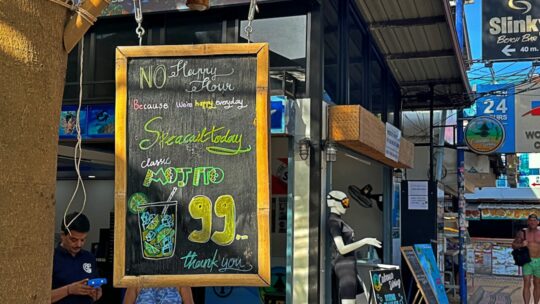 NO Happy
Hour
Because We're happy everyday
Speacail today
classic
MOJITO
99.-
thank you
Slinky
BEACH BAR
← 40 m.
24